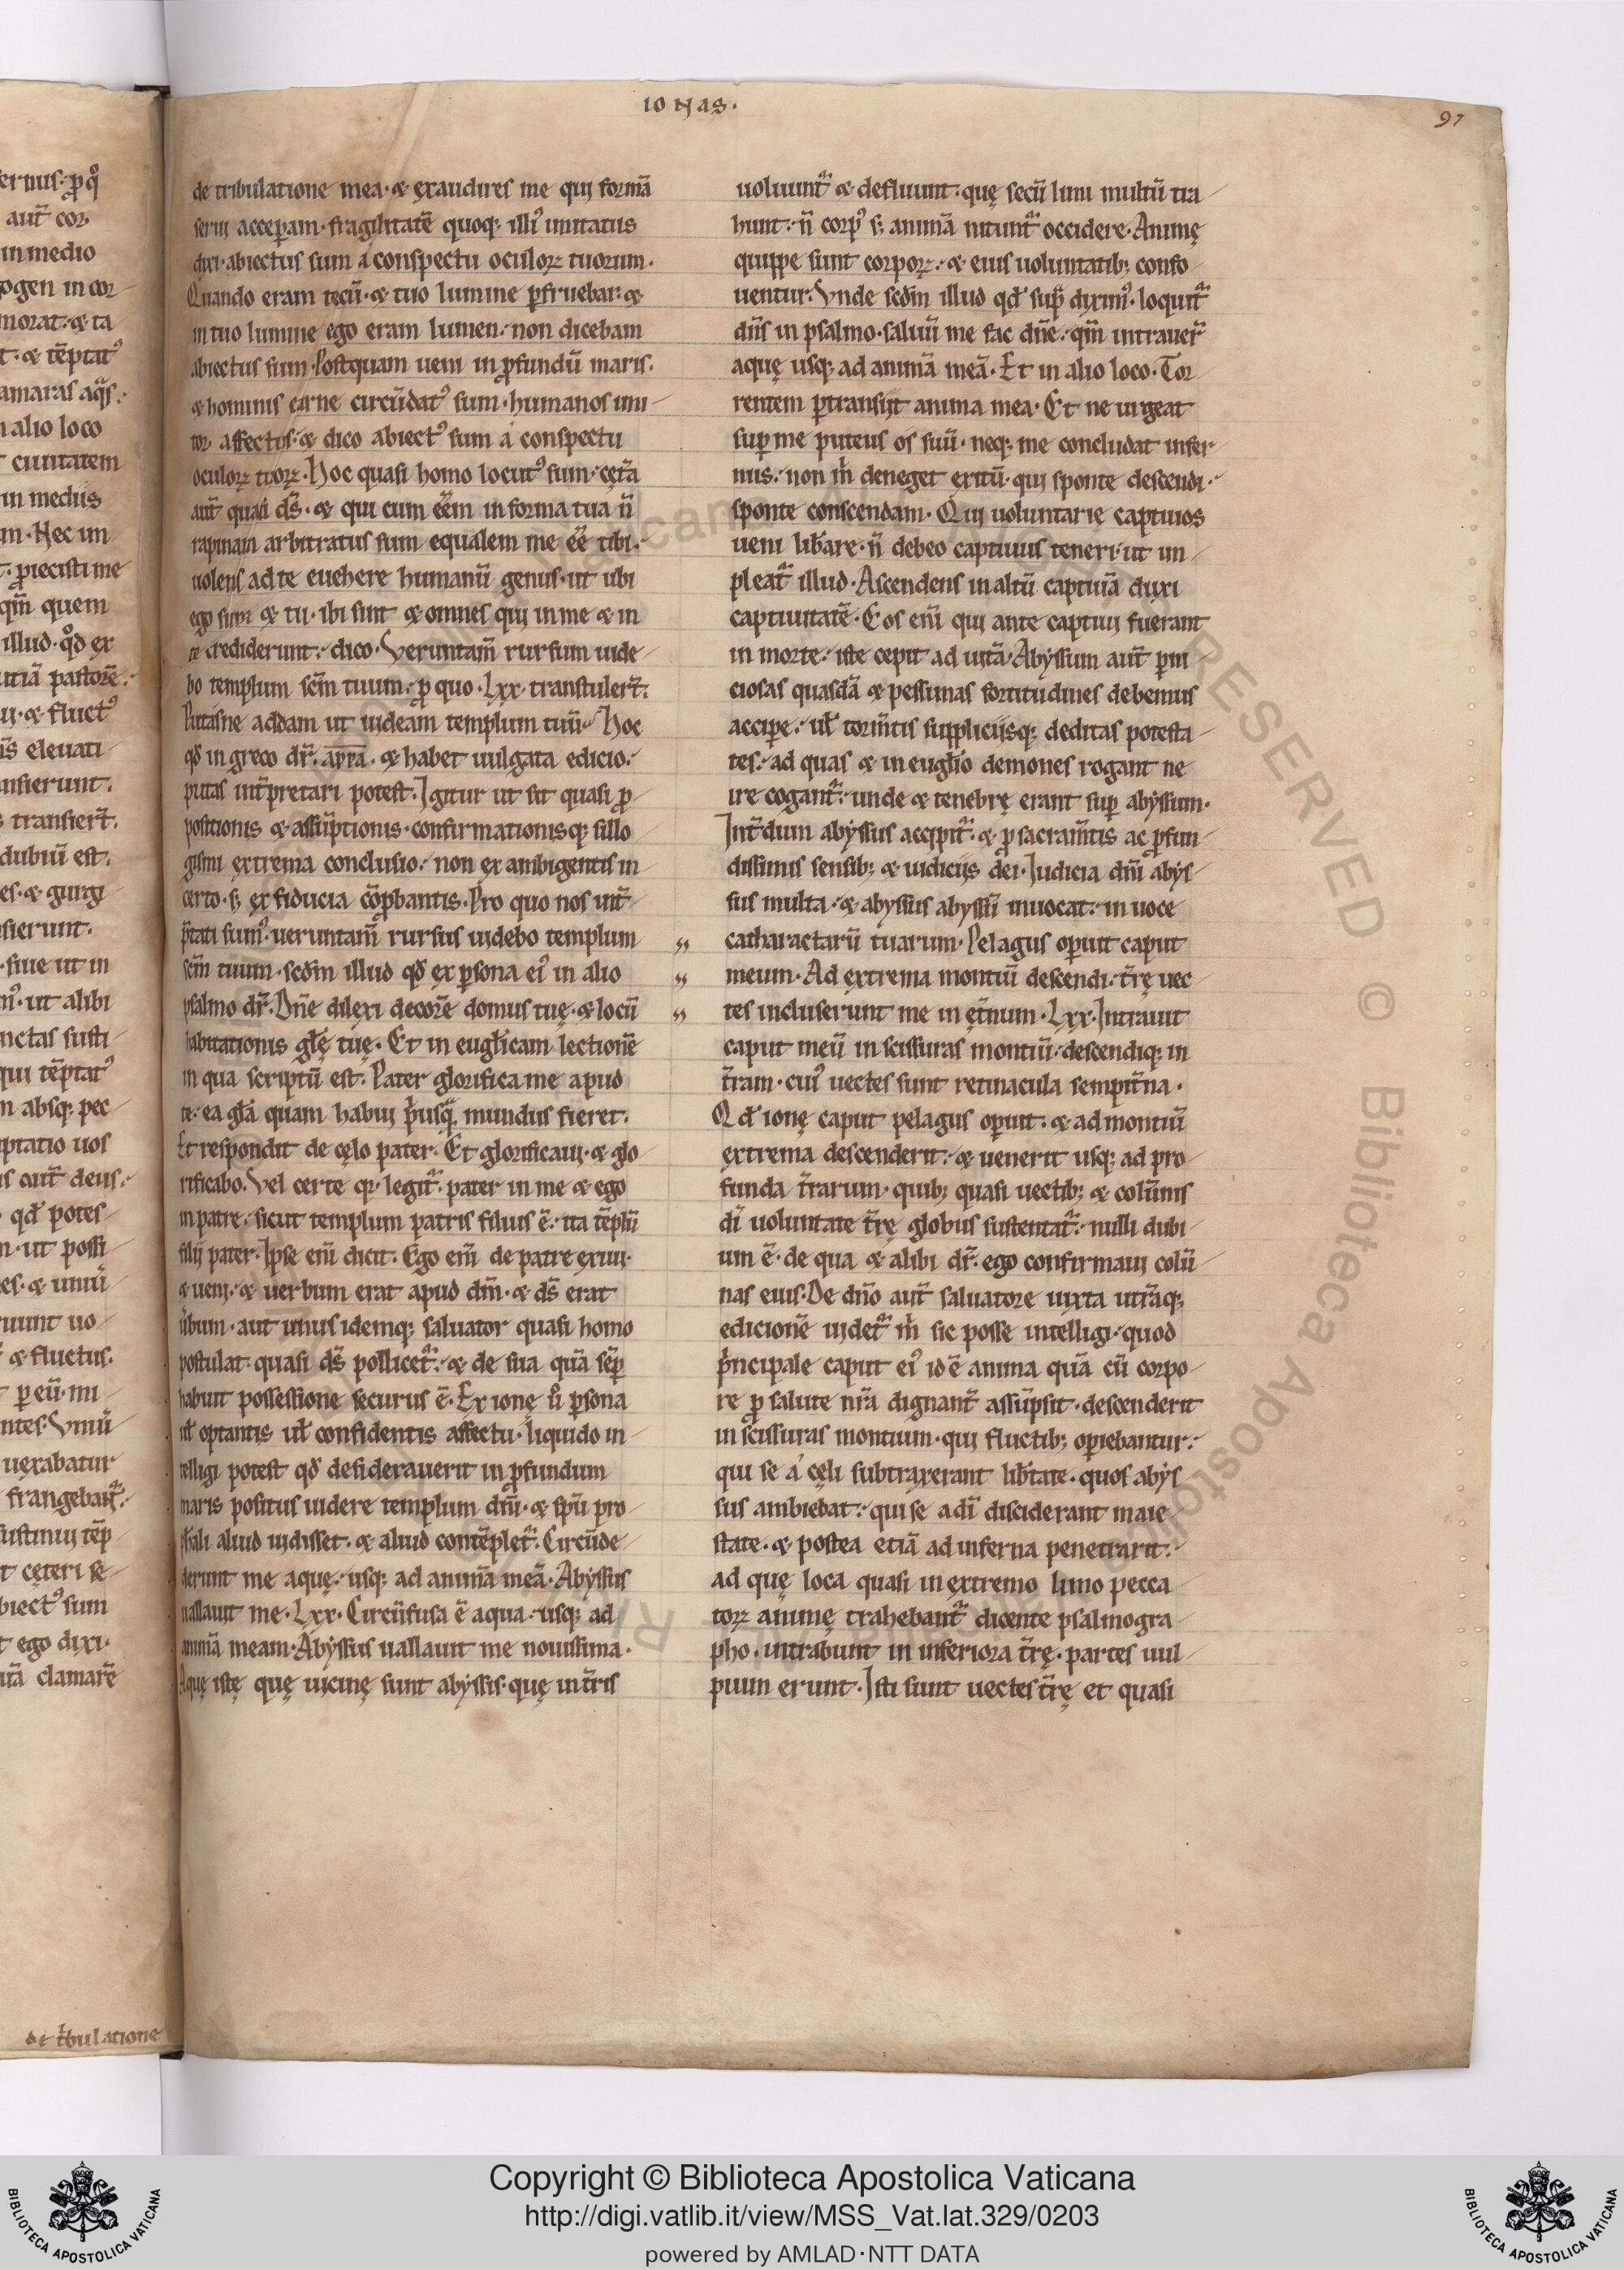 IONAS.
97
de tribulatione mea· & exaudires me qui formā
serui acceperam· fragilitatē quoq; illiꝰ imitatus
dixi· abiectus sum a conspectu oculoꝝ tuorum·
Quando eram tecū· & tuo lumine ꝑfruebar· &
in tuo lumine ego eram lumen· non dicebam
abiectus sum· Postquam ueni in ꝓfundū maris·
& hominis carne circūdatꝰ sum· humanos imi
tor affectus· & dico abiectꝰ sum a conspectu
oculoꝝ tuoꝝ· Hoc quasi homo locutꝰ sum· cęt̄a
aut̄ quasi d̄s· & qui cum eēm in forma tua n̄
rapinam arbitratus sum equalem me eē tibi·
uolens ad te euehere humanū genus· ut ubi
ego sum & tu· ibi sint & omnes qui in me & in
te crediderunt· dico· Veruntam̄ rursum uide
bo templum sc̄m tuum· ꝓ quo· Lxx· transtuler̄t·
Putasne addam ut uideam templum tuū· Hoc
qđ in greco dr̄· αρα· & habet uulgata edicio·
putas int̄pretari potest· Igitur ut sit quasi ꝓ
positionis & assūptionis· confirmationisq; sillo
gismi extrema conclusio· non ex ambigentis in
certo· s; ex fiducia cōꝓbantis· Pro quo nos int̄
p̄tati sumꝰ· ueruntam̄ rursus uidebo templum
sc̄m tuum· scđm illud qđ ex ꝑsona eiꝰ in alio
psalmo dr̄· Dn̄e dilexi decorē domus tuę· & locū
habitationis gl̄ę tuę· Et in euglīcam lectionē
in qua scriptū est· Pater glorifica me apud
te· ea gl̄a quam habui p̄usq̄ mundus fieret·
Et respondit de cęlo pater· Et glorificaui· & glo
rificabo· Vel certe qꝛ legit̄· pater in me & ego
in patre· sicut templum patris filius ē· ita tēplū
filii pater· Ipse eni̅ dicit· Ego eni̅ de patre exiui·
& ueni· & uerbum erat apud dm̄· & d̄s erat
u̅bum· aut unus idemq; saluator quasi homo
postulat· quasi d̄s pollicet̄· & de sua quā sēꝑ
habuit possessione securus ē· Ex ionę u̅o ꝑsona
ul̄ optantis ul̄ confidentis affectu· liquido in
telligi potest qđ desiderauerit in ꝓfundum
maris positus uidere templum dn̄i· & sp̄u pro
ph̄ali aliud uidisset· & aliud contēplet̄· Circūde
derunt me aquę· usq; ad animā meā· Abyssus
uallauit me· Lxx· Circūfusa ē aqua· usq; ad
animā meam· Abyssus uallauit me nouissima·
Aquę istę quę uicinę sunt abyssis· quę in t̄ris
uoluunt̄ & defluunt· quę secū limi multū tra
hunt· n̄ corpꝰ s; animā nitunt̄ occidere· Animę
quippe sunt corpoꝝ· & eius uoluntatib; confo
uentur· Vnde scđm illud qđ sup̄ diximꝰ· loquit̄
dn̄s in psalmo· saluū me fac dn̄e· qm̄ intrauer̄
aquę usq; ad animā meā· Et in alio loco· Tor
rentem ꝑtransiit anima mea· Et ne urgeat
suꝑ me puteus os suū· neq; me concludat infer
nus· non m̄ deneget exitū· qui sponte descendi·
sponte conscendam· Qui uoluntarie captiuos
ueni lib̄are· n̄ debeo captiuus teneri· ut im
pleat̄ illud· Ascendens in altū captiuā duxi
captiuitatē· Eos eni̅ qui ante captiui fuerant
in morte· iste cepit ad uitā· Abyssum aut̄ ꝑni
ciosas quasdā & pessimas fortitudines debemus
acciꝑe· ul̄ torm̄tis suppliciisq; deditas potesta
tes· ad quas & in euglīo demones rogant ne
ire cogant̄· unde & tenebrę erant suꝑ abyssum·
Int̄dum abyssus accipit̄· & ꝓ sacram̄tis ac ꝓfun
dissimis sensib; & iudiciis dei· Iudicia dn̄i abys
sus multa· & abyssus abyssū inuocat· in uoce
catharactarū tuarum· Pelagus oꝑuit caput
meum· Ad extrema montiū descendi· t̄rę uec
tes incluserunt me in ęt̄num· Lxx· Intrauit
caput meū in scissuras montiū· descendiq; in
t̄ram· cuiꝰ uectes sunt retinacula sempit̄na·
Qđ ionę caput pelagus oꝑuit· & ad montiū
extrema descenderit· & uenerit usq; ad pro
funda t̄rarum· quib; quasi uectib; & colūnis
di̅ uoluntate t̄rę globus sustentat̄· nulli dubi
um ē· de qua & alibi dr̄· ego confirmaui colū
nas eius· De dn̄o aut̄ saluatore iuxta utrāq;
edicionē uidet̄ m̄ sic posse intelligi· quod
p̄ncipale caput eiꝰ id ē anima quā cū corpo
re ꝓ salute nr̄a dignant̄ assūpsit· descenderit
in scissuras montium· qui fluctib; oꝑiebantur·
qui se a cęli subtraxerant lib̄tate· quos abys
sus ambiebat· qui se a di̅ disciderant maie
state· & postea etiā ad inferna penetrarit·
ad quę loca quasi in extremo limo pecca
toꝝ animę trahebant̄ dicente psalmogra
pho· intrabunt in inferiora t̄rę· partes uul
pium erunt· Isti sunt uectes t̄rę et quasi
de t̄bulatione
Copyright © Biblioteca Apostolica Vaticana
http://digi.vatlib.it/view/MSS_Vat.lat.329/0203
powered by AMLAD·NTT DATA
BIBLIOTECA APOSTOLICA VATICANA
BIBLIOTECA APOSTOLICA VATICANA